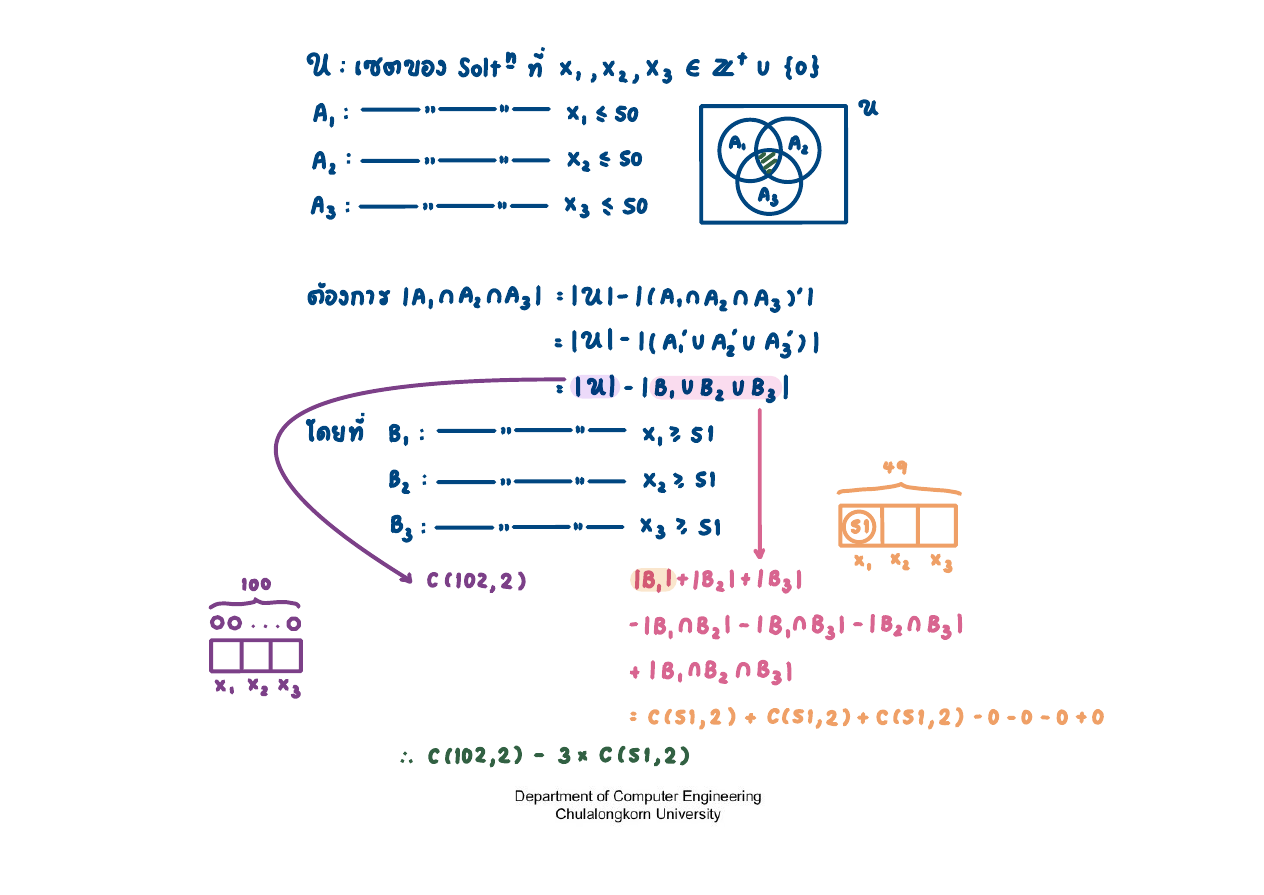 𝒰 : เซตของ Soltⁿ ที่ x₁, x₂, x₃ ∈ ℤ⁺ ∪ {0}
A₁ : ——— " ——— " ——— x₁ ≤ 50
A₂ : ——— " ——— " ——— x₂ ≤ 50
A₃ : ——— " ——— " ——— x₃ ≤ 50
𝒰
A₁ A₂
A₃
ต้องการ |A₁ ∩ A₂ ∩ A₃| = |𝒰| - |(A₁ ∩ A₂ ∩ A₃)'|
= |𝒰| - |(A₁' ∪ A₂' ∪ A₃')|
= |𝒰| - |B₁ ∪ B₂ ∪ B₃|
โดยที่ B₁ : ——— " ——— " ——— x₁ ≥ 51
B₂ : ——— " ——— " ——— x₂ ≥ 51
B₃ : ——— " ——— " ——— x₃ ≥ 51
49
51
x₁ x₂ x₃
C(102,2)
100
...
x₁ x₂ x₃
|B₁| + |B₂| + |B₃|
- |B₁ ∩ B₂| - |B₁ ∩ B₃| - |B₂ ∩ B₃|
+ |B₁ ∩ B₂ ∩ B₃|
= C(51,2) + C(51,2) + C(51,2) - 0 - 0 - 0 + 0
∴ C(102,2) - 3 × C(51,2)
Department of Computer Engineering
Chulalongkorn University